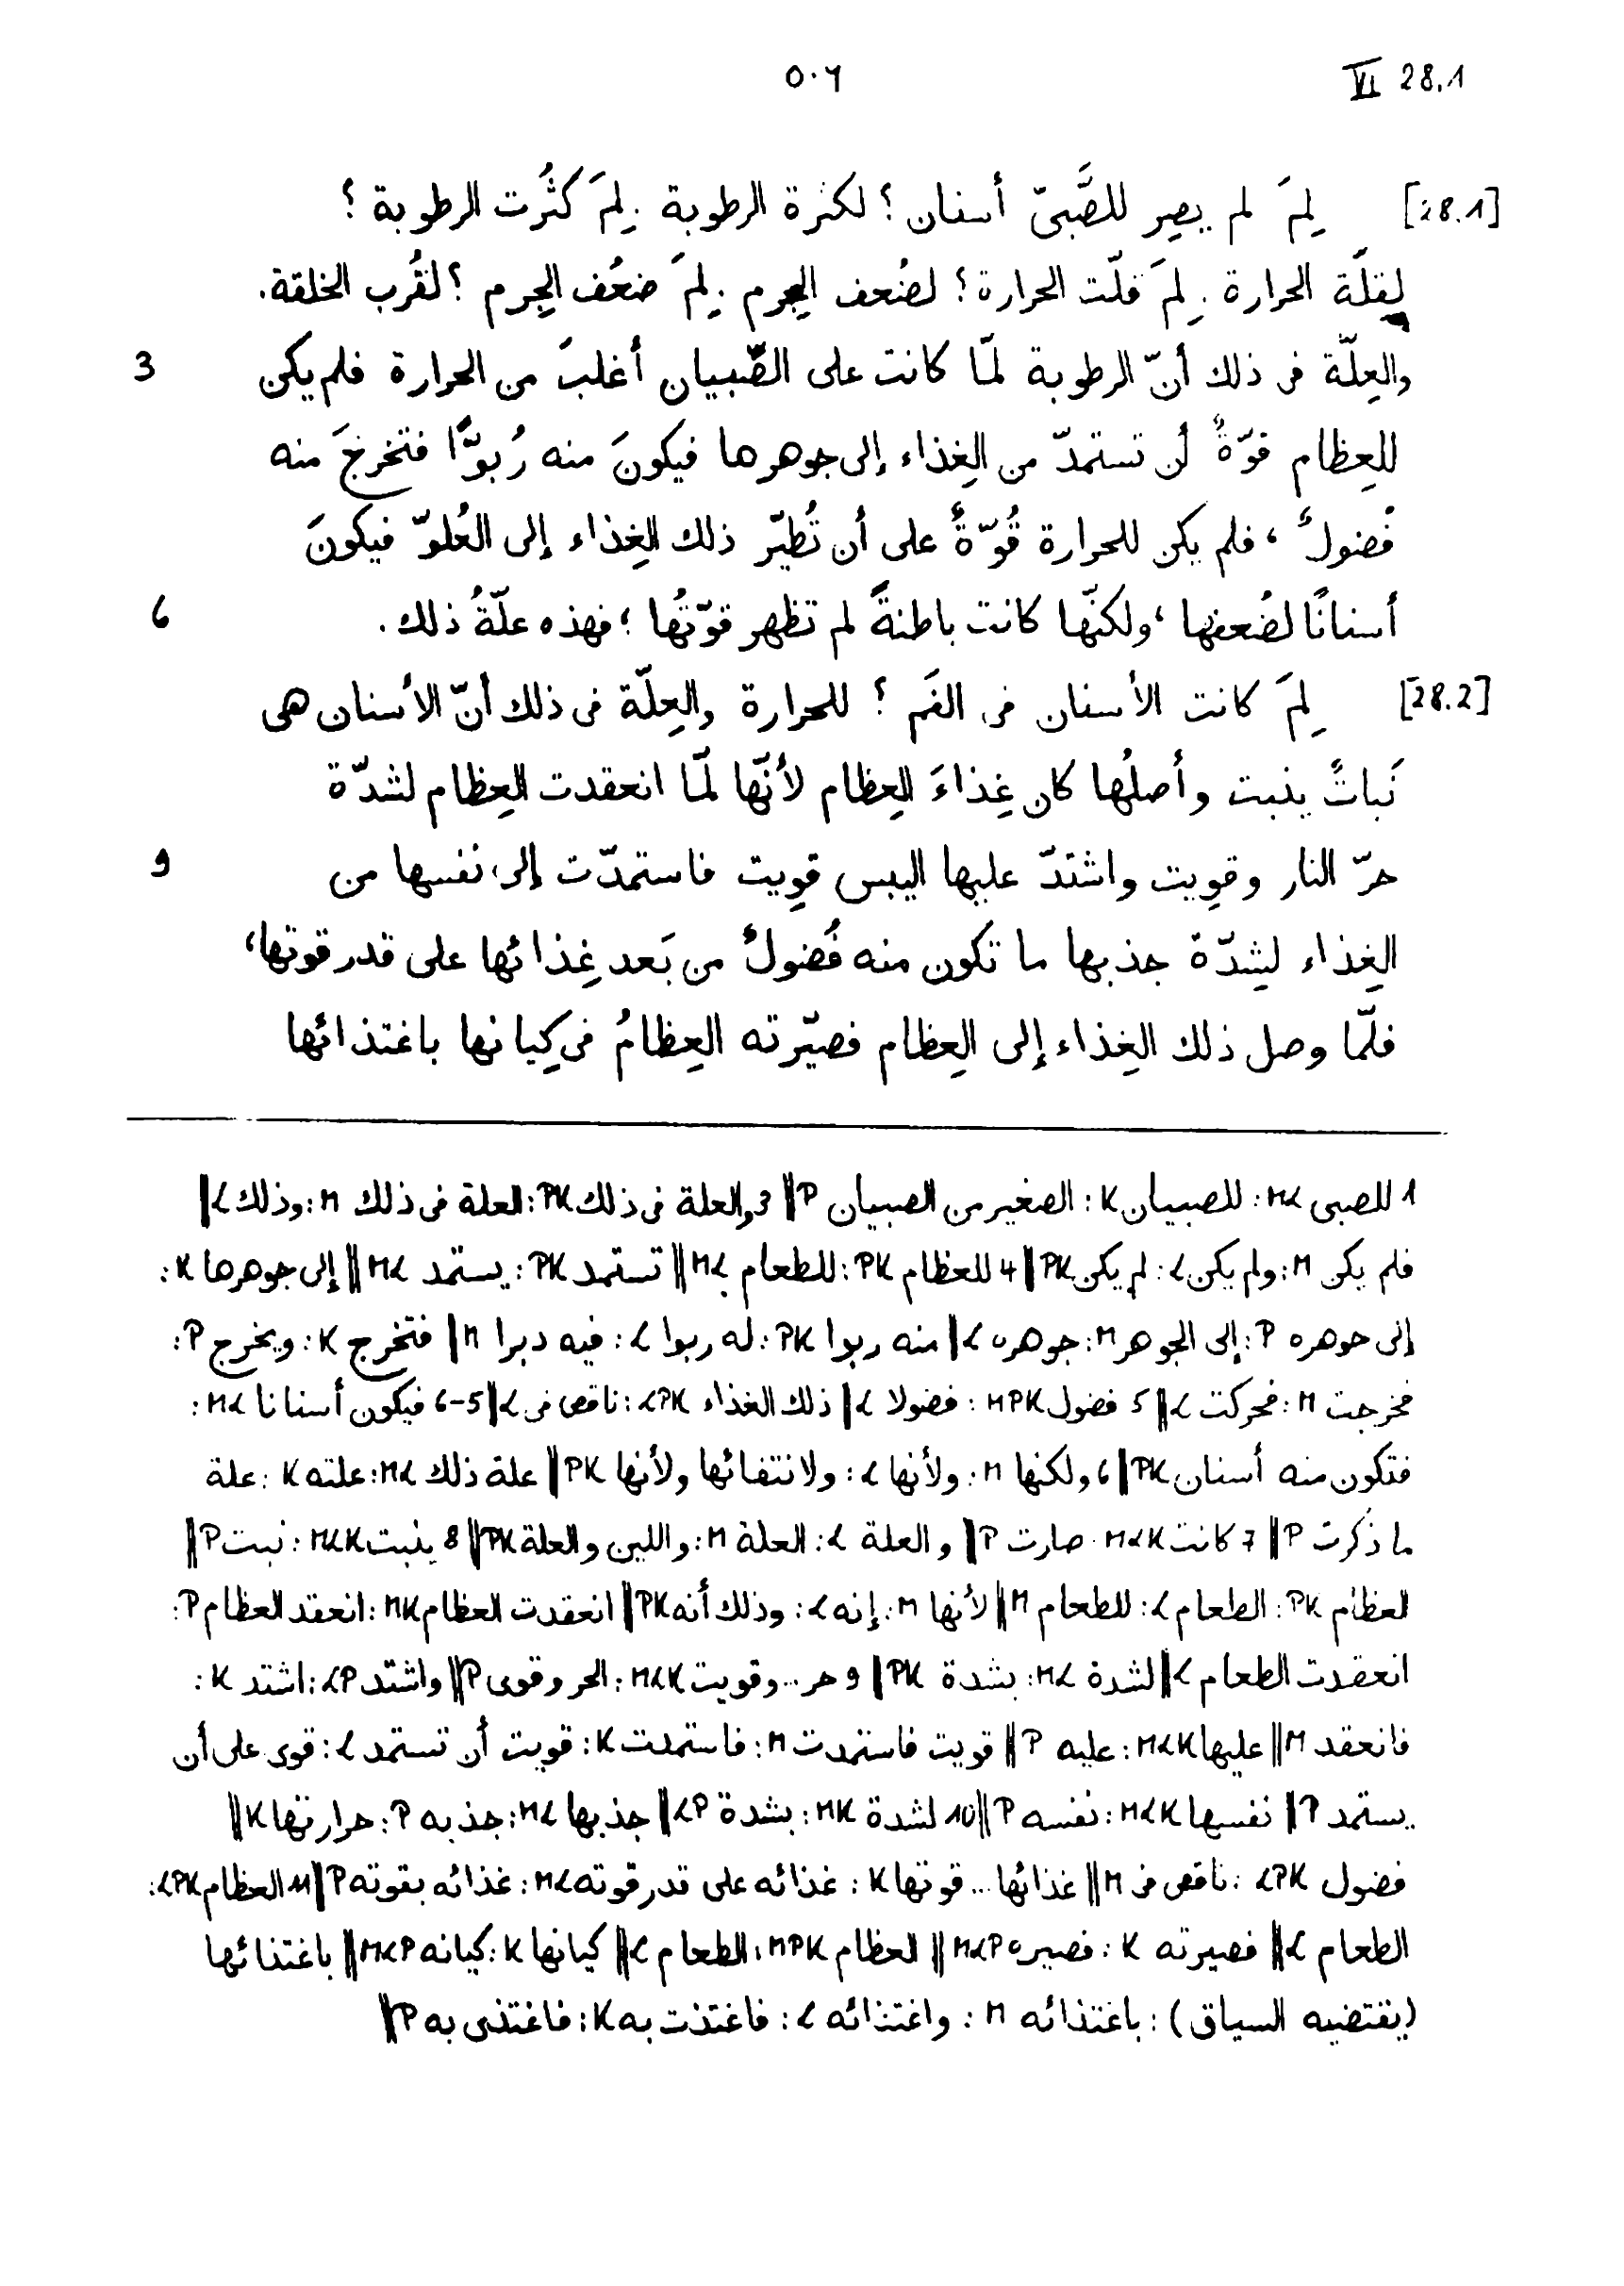 VI 28.1 ٥٠٦
[28.1] لِمَ لم يصِر للصَّبىّ أسنان؟ لكثرة الرطوبة . لِمَ كثُرت الرطوبة ؟
لِقلّة الحرارة . لِمَ قلّت الحرارة؟ لضُعف الجِرم . لِمَ ضعُف الجِرم ؟ لقُرب الخلقة.
3 والعِلّة فى ذلك أنّ الرطوبة لمّا كانت على الصِّبيان أغلبَ من الحرارة فلم يكن
للعِظام قوّةٌ أن تستمدّ من الغِذاء إلى جوهرها فيكونَ منه رُبوًّا فتخرجَ منه
فُضولٌ ، فلم يكن للحرارة قُوّةٌ على أن تُطيّر ذلك الغِذاء إلى العُلوّ فيكونَ
6 أسنانًا لضُعفها ، ولكنّها كانت باطنةً لم تظهر قوّتُها ؛ فهذه علّةُ ذلك .
[28.2] لِمَ كانت الأسنان فى الفَم ؟ للحرارة والعِلّة فى ذلك أنّ الأسنان هى
نَباتٌ ينبت وأصلُها كان غِذاءَ العِظام لأنّها لمّا انعقدت العِظام لشدّة
9 حرّ النار وقوِيت واشتدّ عليها اليبس قوِيت فاستمدّت إلى نفسها من
الغِذاء لشِدّة جذبها ما تكون منه فُضولٌ من بَعد غِذائها على قدر قوتها،
فلمّا وصل ذلك الغِذاء إلى العِظام فصيّرته العِظامُ فى كِيانها باغتذائها
1 للصبى ML : للصبيان K : الصغير من الصبيان P ‖ 3 والعلة فى ذلك PK : العلة فى ذلك M : وذلك L ‖
فلم يكن M : ولم يكن L : لم يكن PK ‖ 4 للعظام PK : للطعام ML ‖ تستمد PK : يستمد ML ‖ إلى جوهرها K :
إلى جوهره P : إلى الجوهر M : جوهره L ‖ منه ربوا PK : له ربوا L : فيه دبرا M ‖ فتخرج K : ويخرج P :
فخرجت M : فحركت L ‖ 5 فضول MPK : فضولا L ‖ ذلك الغذاء LPK : ناقص فى L ‖ 5-6 فيكون أسنانا ML :
فتكون منه أسنان PK ‖ 6 ولكنها M : ولأنها L : ولانتفائها ولأنها PK ‖ علة ذلك ML : علته K : علة
ما ذكرت P ‖ 7 كانت MLK : صارت P ‖ والعلة L : العلة M : واللين والعلة PK ‖ 8 ينبت MLK : نبت P ‖
العظام PK : الطعام L : للطعام M ‖ لأنها M : إنه L : وذلك أنه PK ‖ انعقدت العظام MK : انعقد العظام P :
انعقدت الطعام L ‖ لشدة ML : بشدة PK ‖ 9 حر...وقويت MLK : الحر وقوى P ‖ واشتد LP : اشتد K :
فانعقد M ‖ عليها MLK : عليه P ‖ قويت فاستمدت M : فاستمدت K : قويت أن تستمد L : قوى على أن
يستمد P ‖ نفسها MLK : نفسه P ‖ 10 لشدة MK : بشدة LP ‖ جذبها ML : جذبه P : حرارتها K ‖
فضول LPK : ناقص فى M ‖ غذائها ... قوتها K : غذائه على قدر قوته ML : غذائه بقوته P ‖ 11 العظام LPK :
الطعام L ‖ فصيرته K : فصيره MLP ‖ العظام MPK : الطعام L ‖ كيانها K : كيانه MLP ‖ باغتذائها
(يقتضيه السياق) : باغتذائه M : واغتذائه L : فاغتذت به K : فاغتذى به P ‖